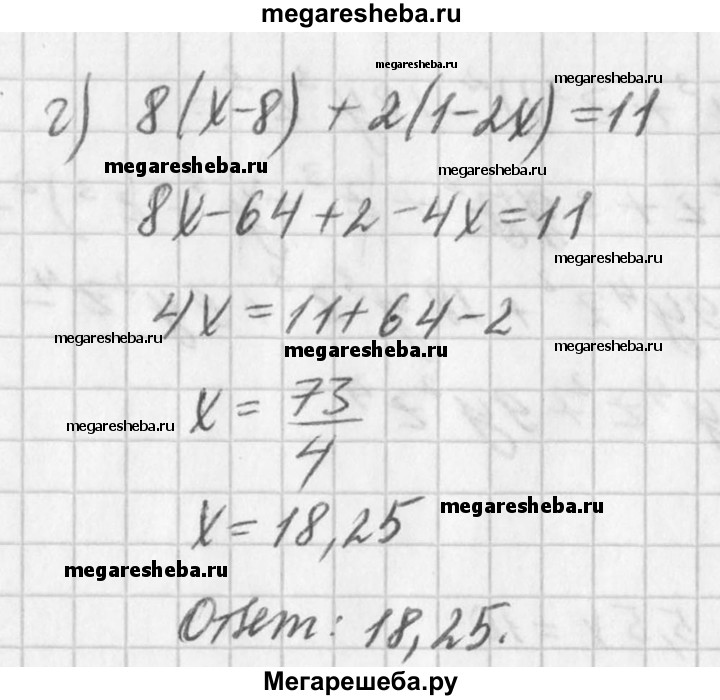 megaresheba.ru
megaresheba.ru
megaresheba.ru
г) 8(x-8) + 2(1-2x) = 11
megaresheba.ru
megaresheba.ru
8x-64+2-4x=11
megaresheba.ru
4x = 11+64-2
megaresheba.ru
megaresheba.ru
megaresheba.ru
x = 73/4
megaresheba.ru
x = 18,25
megaresheba.ru
megaresheba.ru
Ответ: 18,25.
Мегарешеба.ру